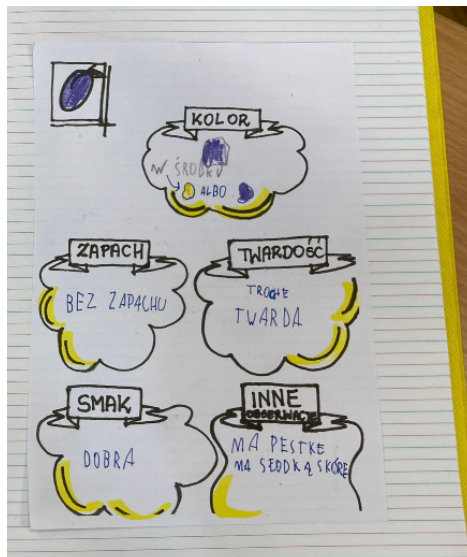 KOLOR
W ŚRODKU
ALBO
ZAPACH
BEZ ZAPACHU
TWARDOŚĆ
TROCHE
TWARDA
SMAK
DOBRA
INNE
OBSERWACJE
MA PESTKE
MA SŁODKĄ SKÓRE